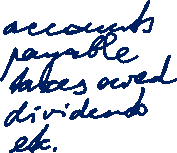 accounts
payable
taxes owed
dividends
etc.